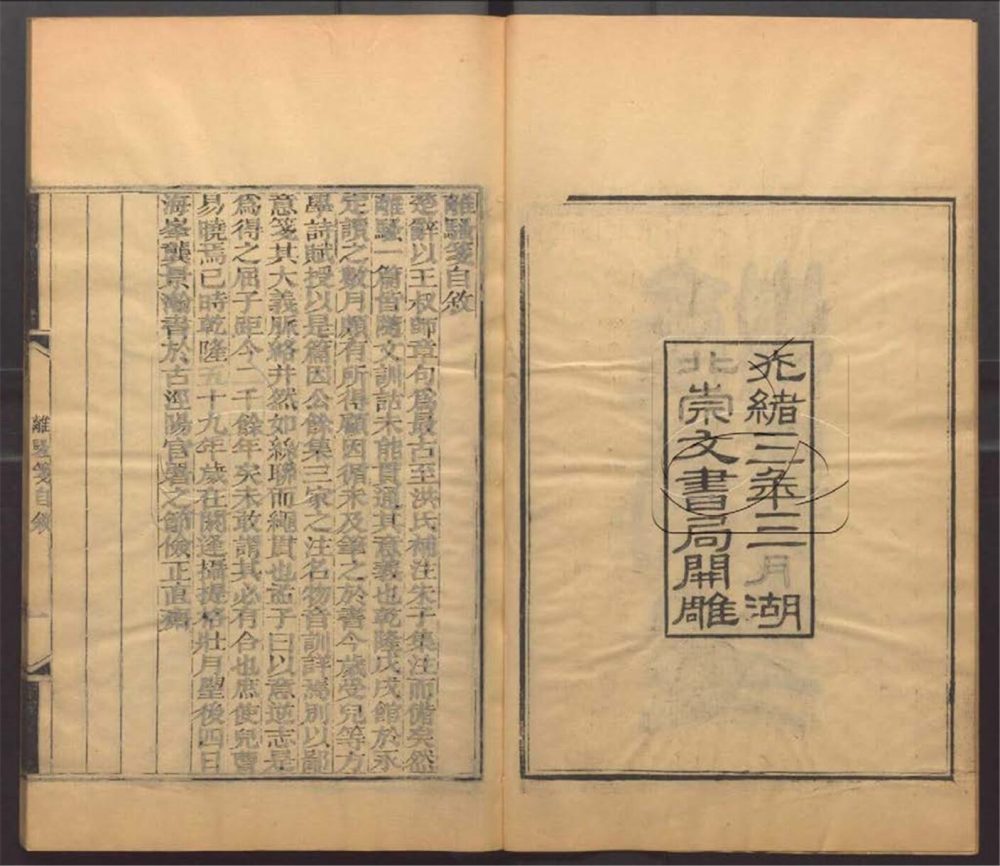 光緒三年三月湖
北崇文書局開雕
離騷箋自敘
楚辭以王叔師章句爲最古至洪氏補注朱子集注而備矣然
離騷一篇皆隨文訓詁未能貫通其意義也乾隆戊戌館於永
定讀之數月頗有所得顧因循未及筆之於書今歲受兒等方
學詩賦授以是篇因公餘集三家之注名物音訓詳焉別以鄙
意箋其大義脈絡井然如絲聯而繩貫也孟子曰以意逆志是
爲得之屈子距今二千餘年矣未敢謂其必有合也庶使兒曹
易曉焉已時乾隆五十九年歲在閼逢攝提格壯月望後四日
海峯龔景瀚書於古涇陽官署之節儉正直齋
離騷箋自敘
一